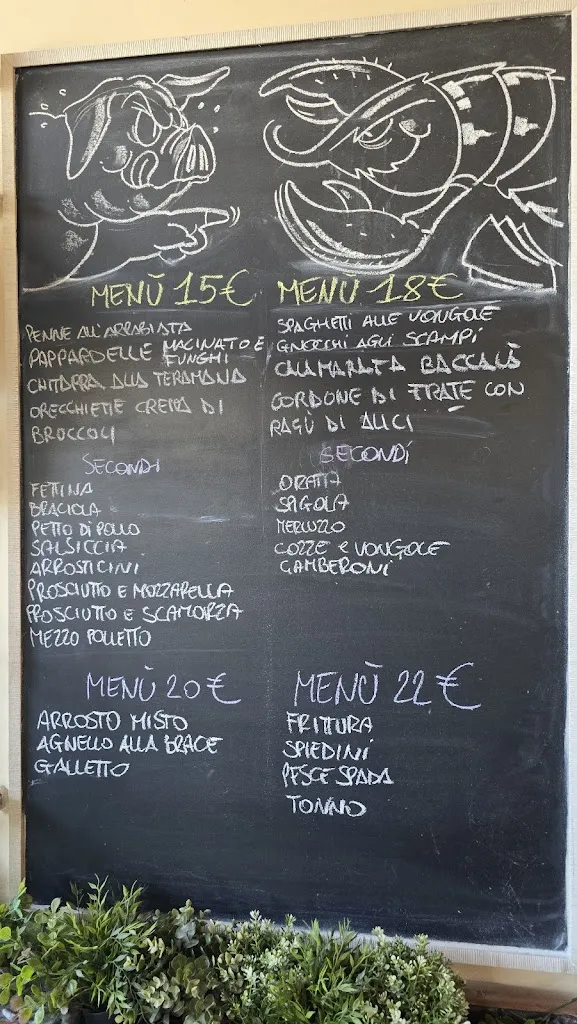 MENÙ 15€
PENNE ALL'ARRABIATA
PAPPARDELLE MACINATO E
FUNGHI
CHITARRA ALLA TERAMANA
ORECCHIETTE CREMA DI
BROCCOLI
SECONDI
FETTINA
BRACIOLA
PETTO DI POLLO
SALSICCIA
ARROSTICINI
PROSCIUTTO E MOZZARELLA
PROSCIUTTO E SCAMORZA
MEZZO POLLETTO
MENÙ 20€
ARROSTO MISTO
AGNELLO ALLA BRACE
GALLETTO
MENU 18€
SPAGHETTI ALLE VONGOLE
GNOCCHI AGLI SCAMPI
BACCALÀ
CORDONE DI FRATE CON
RAGÙ DI ALICI
SECONDÍ
ORATA
SPIGOLA
MERLUZZO
COZZE E VONGOLE
GAMBERONI
MENÙ 22€
FRITTURA
SPIEDINI
PESCE SPADA
TONNO